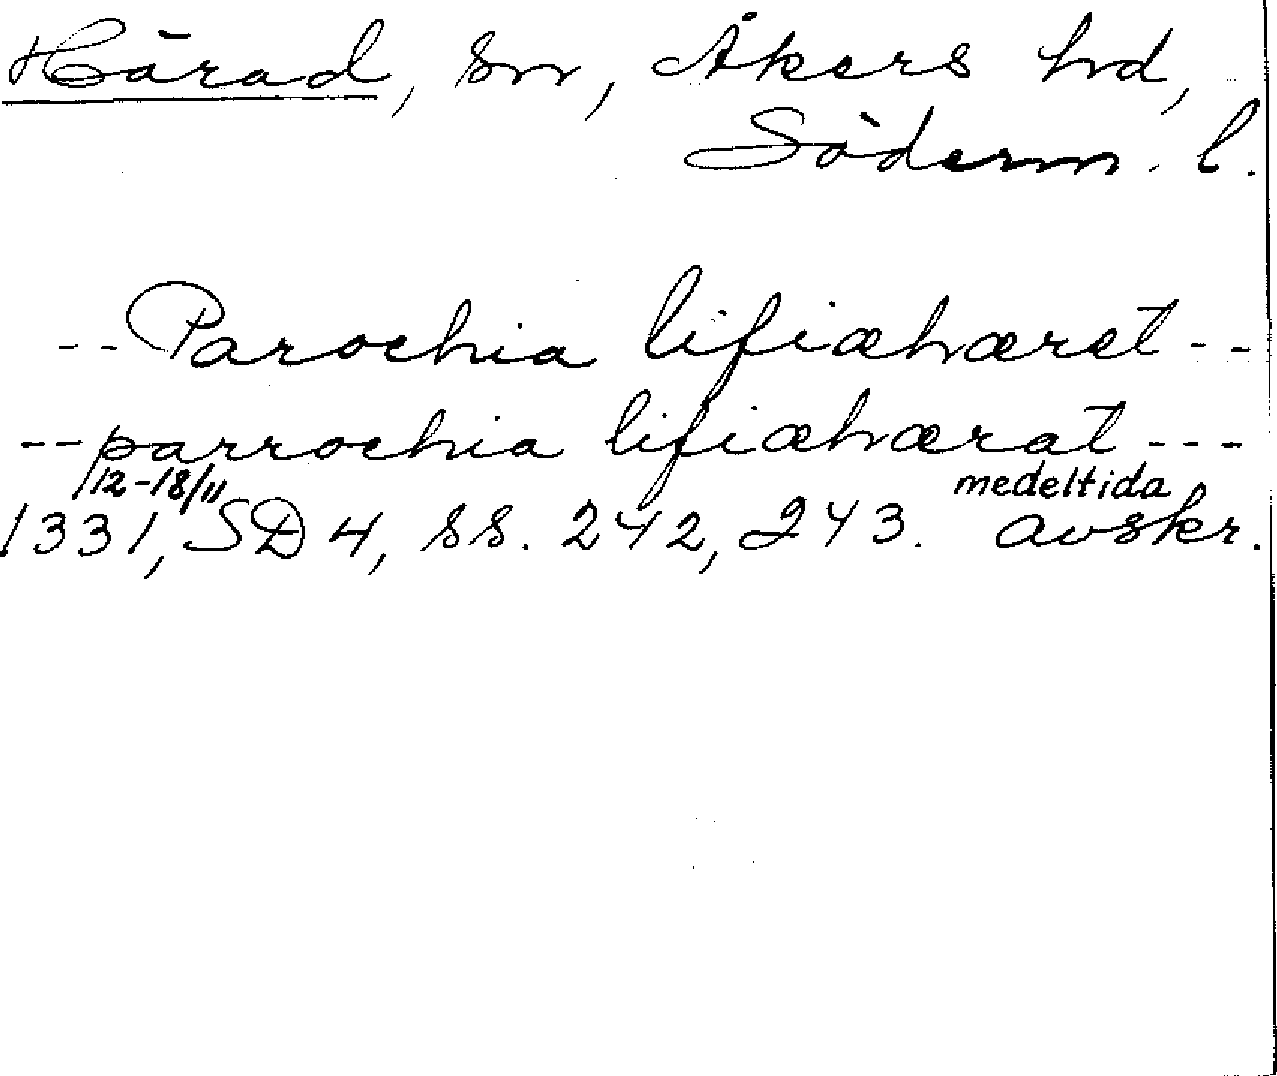 Härad, sn, Åkers hd,
Söderm. l.
-- Parochia lifiæhæret --
-- parrochia lifiæhærat ---
12-18/11 medeltida
1331, SD 4, ss. 242, 243. avskr.